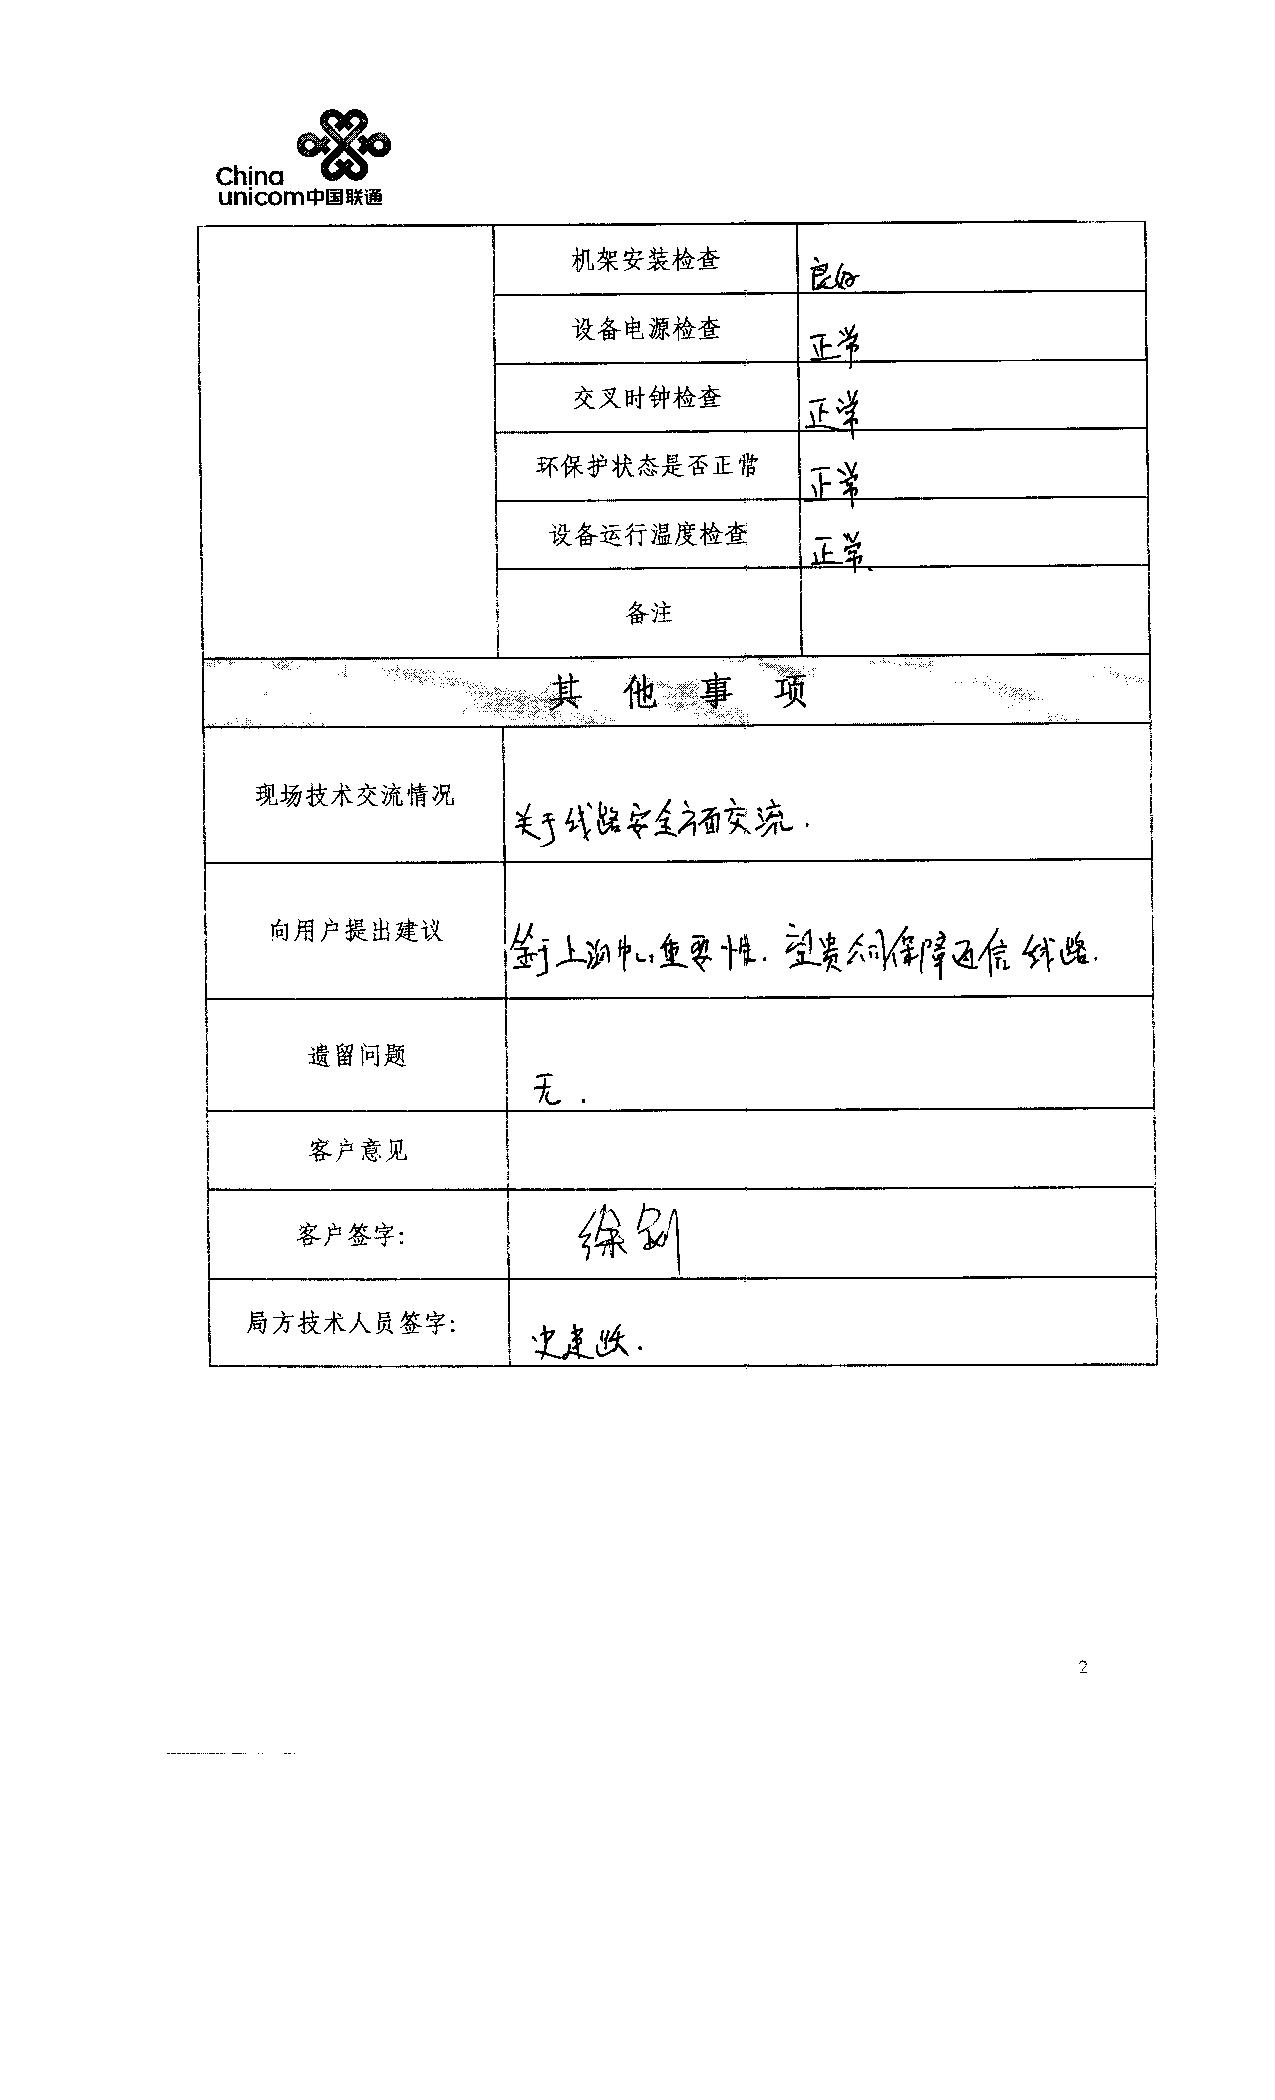 China
unicom中国联通
机架安装检查 良好
设备电源检查 正常
交叉时钟检查 正常
环保护状态是否正常 正常
设备运行温度检查 正常.
备注
其他事项
现场技术交流情况 关于线路安全方面交流.
向用户提出建议 鉴于上海中心重要性. 望贵公司保障通信线路.
遗留问题 无.
客户意见
客户签字: 徐
局方技术人员签字: 史建跃.
2